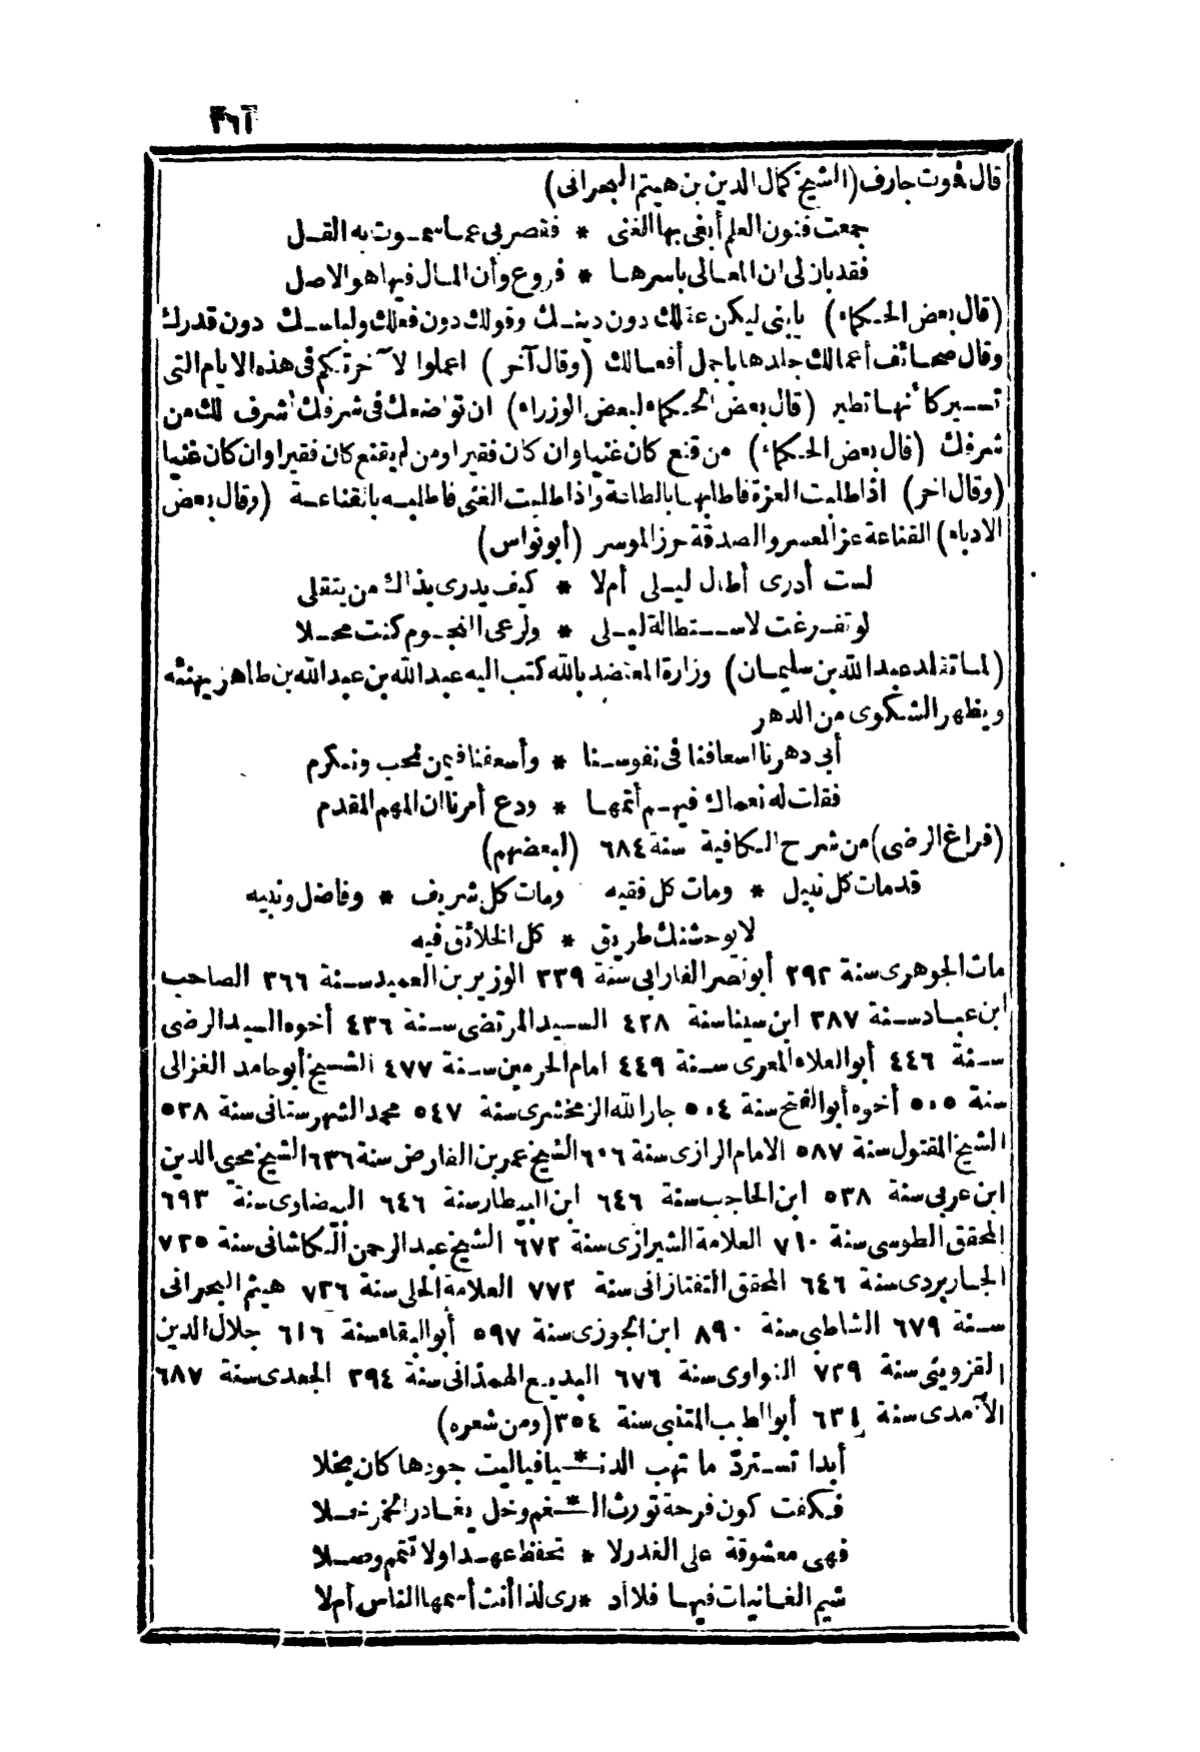 ٣٦١
قال موت جارف (الشيخ كمال الدين بن هيثم البحرانى)
جمعت فنون العلم أبغى بها الغنى * فقصر بى عما سموت به القل
فقد بان لى ان المعالى باسرها * فروع وأن المال فيها هو الاصل
(قال بعض الحكماء) يابنى ليكن عقلك دون دينك وقولك دون فعلك ولباسك دون قدرك
وقال صحائف أعمالك جلدها باجمل أفعالك (وقال آخر) اعملوا لآخرتكم فى هذه الايام التى
تسير كأنها تطير (قال بعض الحكماء لبعض الوزراء) ان تواضعك فى شرفك أشرف لك من
شرفك (قال بعض الحكماء) من قنع كان غنيا وان كان فقيرا ومن لم يقنع كان فقيرا وان كان غنيا
(وقال اخر) اذا طلبت العزة فاطلبها بالطاعة واذا طلبت الغنى فاطلبه بالقناعة (وقال بعض
الادباء) القناعة عز المعسر والصدقة حرز الموسر (أبو نواس)
لست أدرى أطال ليلى أم لا * كيف يدرى بذاك من يتقلى
لو تفرغت لاستطالة ليلى * ولرعى النجوم كنت مخلا
(لما تقلد عبد الله بن سليمان) وزارة المعتضد بالله كتب اليه عبد الله بن عبد الله بن طاهر يهنئه
ويظهر الشكوى من الدهر
أبى دهرنا اسعافنا فى نفوسنا * وأسعفنا فيمن نحب ونكرم
فقلت له نعماك فيهم أتمها * ودع أمرنا ان المهم المقدم
(فراغ الرضى) من شرح الكافية سنة ٦٨٤ (لبعضهم)
قد مات كل نبيل * ومات كل فقيه ومات كل شريف * وفاضل ونبيه
لا يوحشنك طريق * كل الخلائق فيه
مات الجوهرى سنة ٢٩٢ أبو نصر الفارابى سنة ٣٣٩ الوزير بن العميد سنة ٣٦٦ الصاحب
ابن عباد سنة ٣٨٧ ابن سينا سنة ٤٢٨ السيد المرتضى سنة ٤٣٦ أخوه السيد الرضى
سنة ٤٤٦ أبو العلاء المعرى سنة ٤٤٩ امام الحرمين سنة ٤٧٧ الشيخ أبو حامد الغزالى
سنة ٥٠٥ أخوه أبو الفتح سنة ٥٠٤ جار الله الزمخشرى سنة ٥٤٧ محمد الشهرستانى سنة ٥٣٨
الشيخ المقتول سنة ٥٨٧ الامام الرازى سنة ٦٠٦ الشيخ عمر بن الفارض سنة ٦٣٦ الشيخ محيي الدين
ابن عربى سنة ٥٣٨ ابن الحاجب سنة ٦٤٦ ابن البيطار سنة ٦٤٦ البيضاوى سنة ٦٩٣
المحقق الطوسى سنة ٧١٠ العلامة الشيرازى سنة ٦٧٢ الشيخ عبد الرحمن الكاشانى سنة ٧٢٥
الجاربردى سنة ٦٤٦ المحقق التفتازانى سنة ٧٧٢ العلامة الحلى سنة ٧٢٦ هيثم البحرانى
سنة ٦٧٩ الشاطبى سنة ٨٩٠ ابن الجوزى سنة ٥٩٧ أبو البقاء سنة ٦١٦ جلال الدين
القزوينى سنة ٧٣٩ النواوى سنة ٦٧٦ البديع الهمذانى سنة ٣٩٤ الجعدى سنة ٦٨٧
الآمدى سنة ٦٣١ أبو الطيب المتنبى سنة ٣٥٤ (ومن شعره)
أبدا تسترد ما تهب الدنـ * ـيا فياليت جودها كان بخلا
فكفت كون فرحة تورث الـ * ـغم وخل يغادر الحزن خلا
فهى معشوقة على الغدر لا * تحفظ عهدا ولا تتمم وصلا
شيم الغانيات فيها فلا أد * رى لذا أنث أسمها الناس أم لا